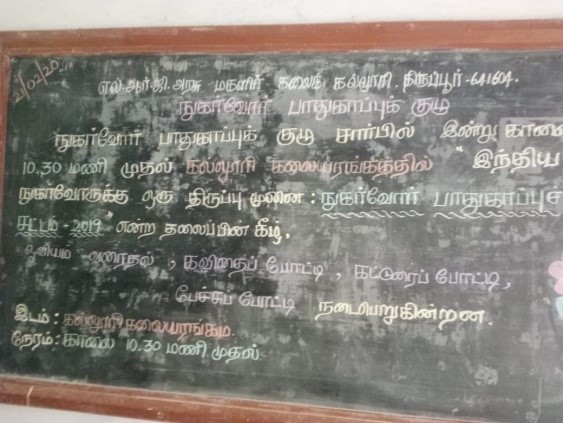 21/02/20
எல்.ஆர்.ஜி. அரசு மகளிர் கலைக் கல்லூரி, திருப்பூர்-641604.
நுகர்வோர் பாதுகாப்புக் குழு
நுகர்வோர் பாதுகாப்புக் குழு சார்பில் இன்று காலை
10.30 மணி முதல் கல்லூரி கலையரங்கத்தில் "இந்திய
நுகர்வோருக்கு ஒரு திருப்பு முனை : நுகர்வோர் பாதுகாப்புச்
சட்டம் - 2019" என்ற தலைப்பின் கீழ்,
ஓவியம் வரைதல், கவிதைப் போட்டி, கட்டுரைப் போட்டி,
பேச்சுப் போட்டி நடைபெறுகின்றன.
இடம் : கல்லூரி கலையரங்கம்.
நேரம் : காலை 10.30 மணி முதல்.